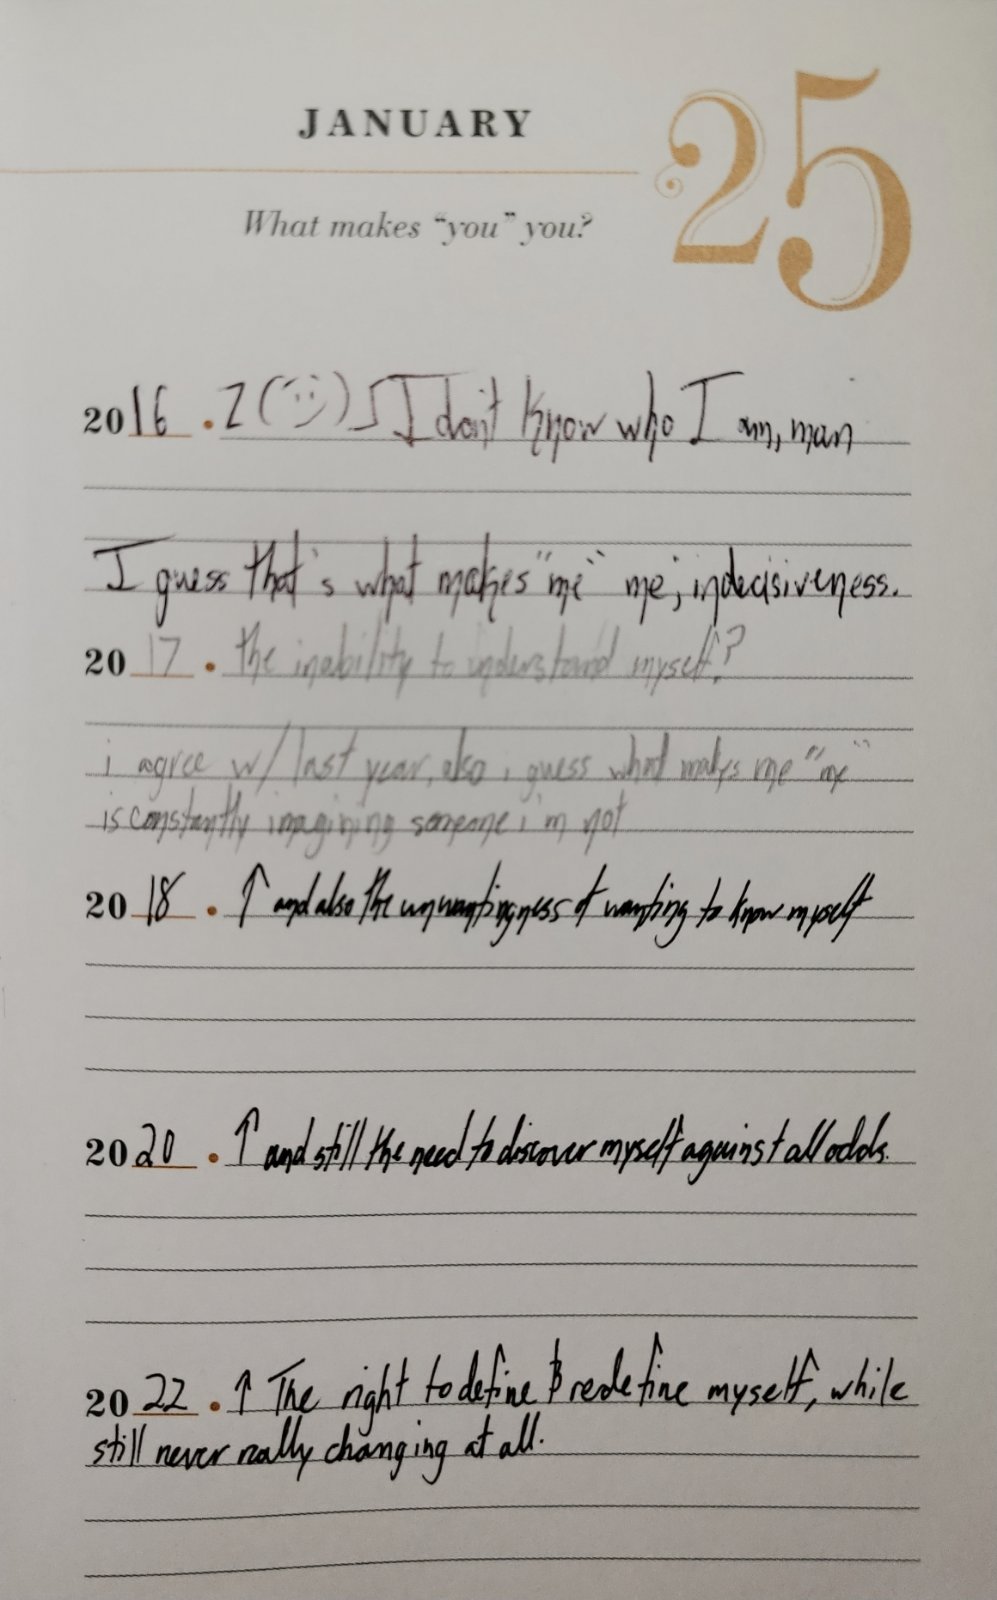 JANUARY
25
What makes “you” you?
2016 . I don't know who I am, man
I guess that's what makes "me" me; indecisiveness.
2017 . the inability to understand myself?
i agree w/ last year, also i guess what makes me "me"
is constantly imagining someone i'm not
2018 . ↑ and also the unwantingness of wanting to know myself
2020 . ↑ and still the need to discover myself against all odds.
2022 . ↑ The right to define & redefine myself, while
still never really changing at all.